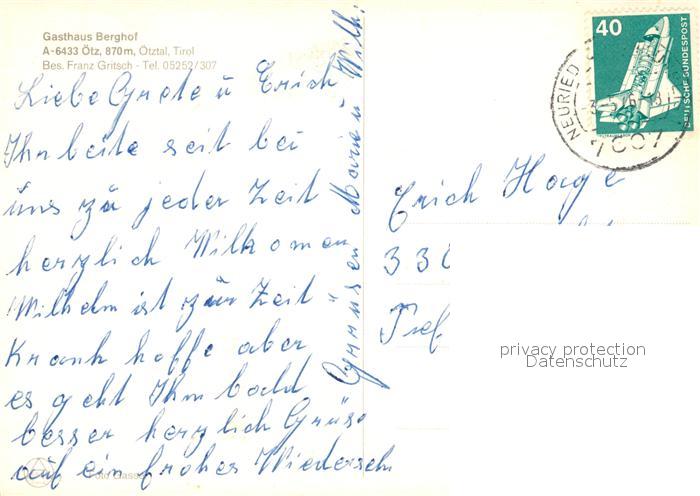 Gasthaus Berghof
A-6433 Ötz, 870 m, Ötztal, Tirol
Bes. Franz Gritsch - Tel. 05252/307
Liebe Grete u Erich
Ihr beite seit bei
üns zu jeder Zeit
herzlich Wilkomen
Wilhelm ist zur Zeit
Krank hoffe aber
es geht Ihm bald
besser herzlich Grüse
auf ein frohes Wiedersehn
Grüsen Marie u Wilh.
Foto Gasse
40
DEUTSCHE BUNDESPOST
NEURIED
Erich Hage
33
privacy protection
Datenschutz